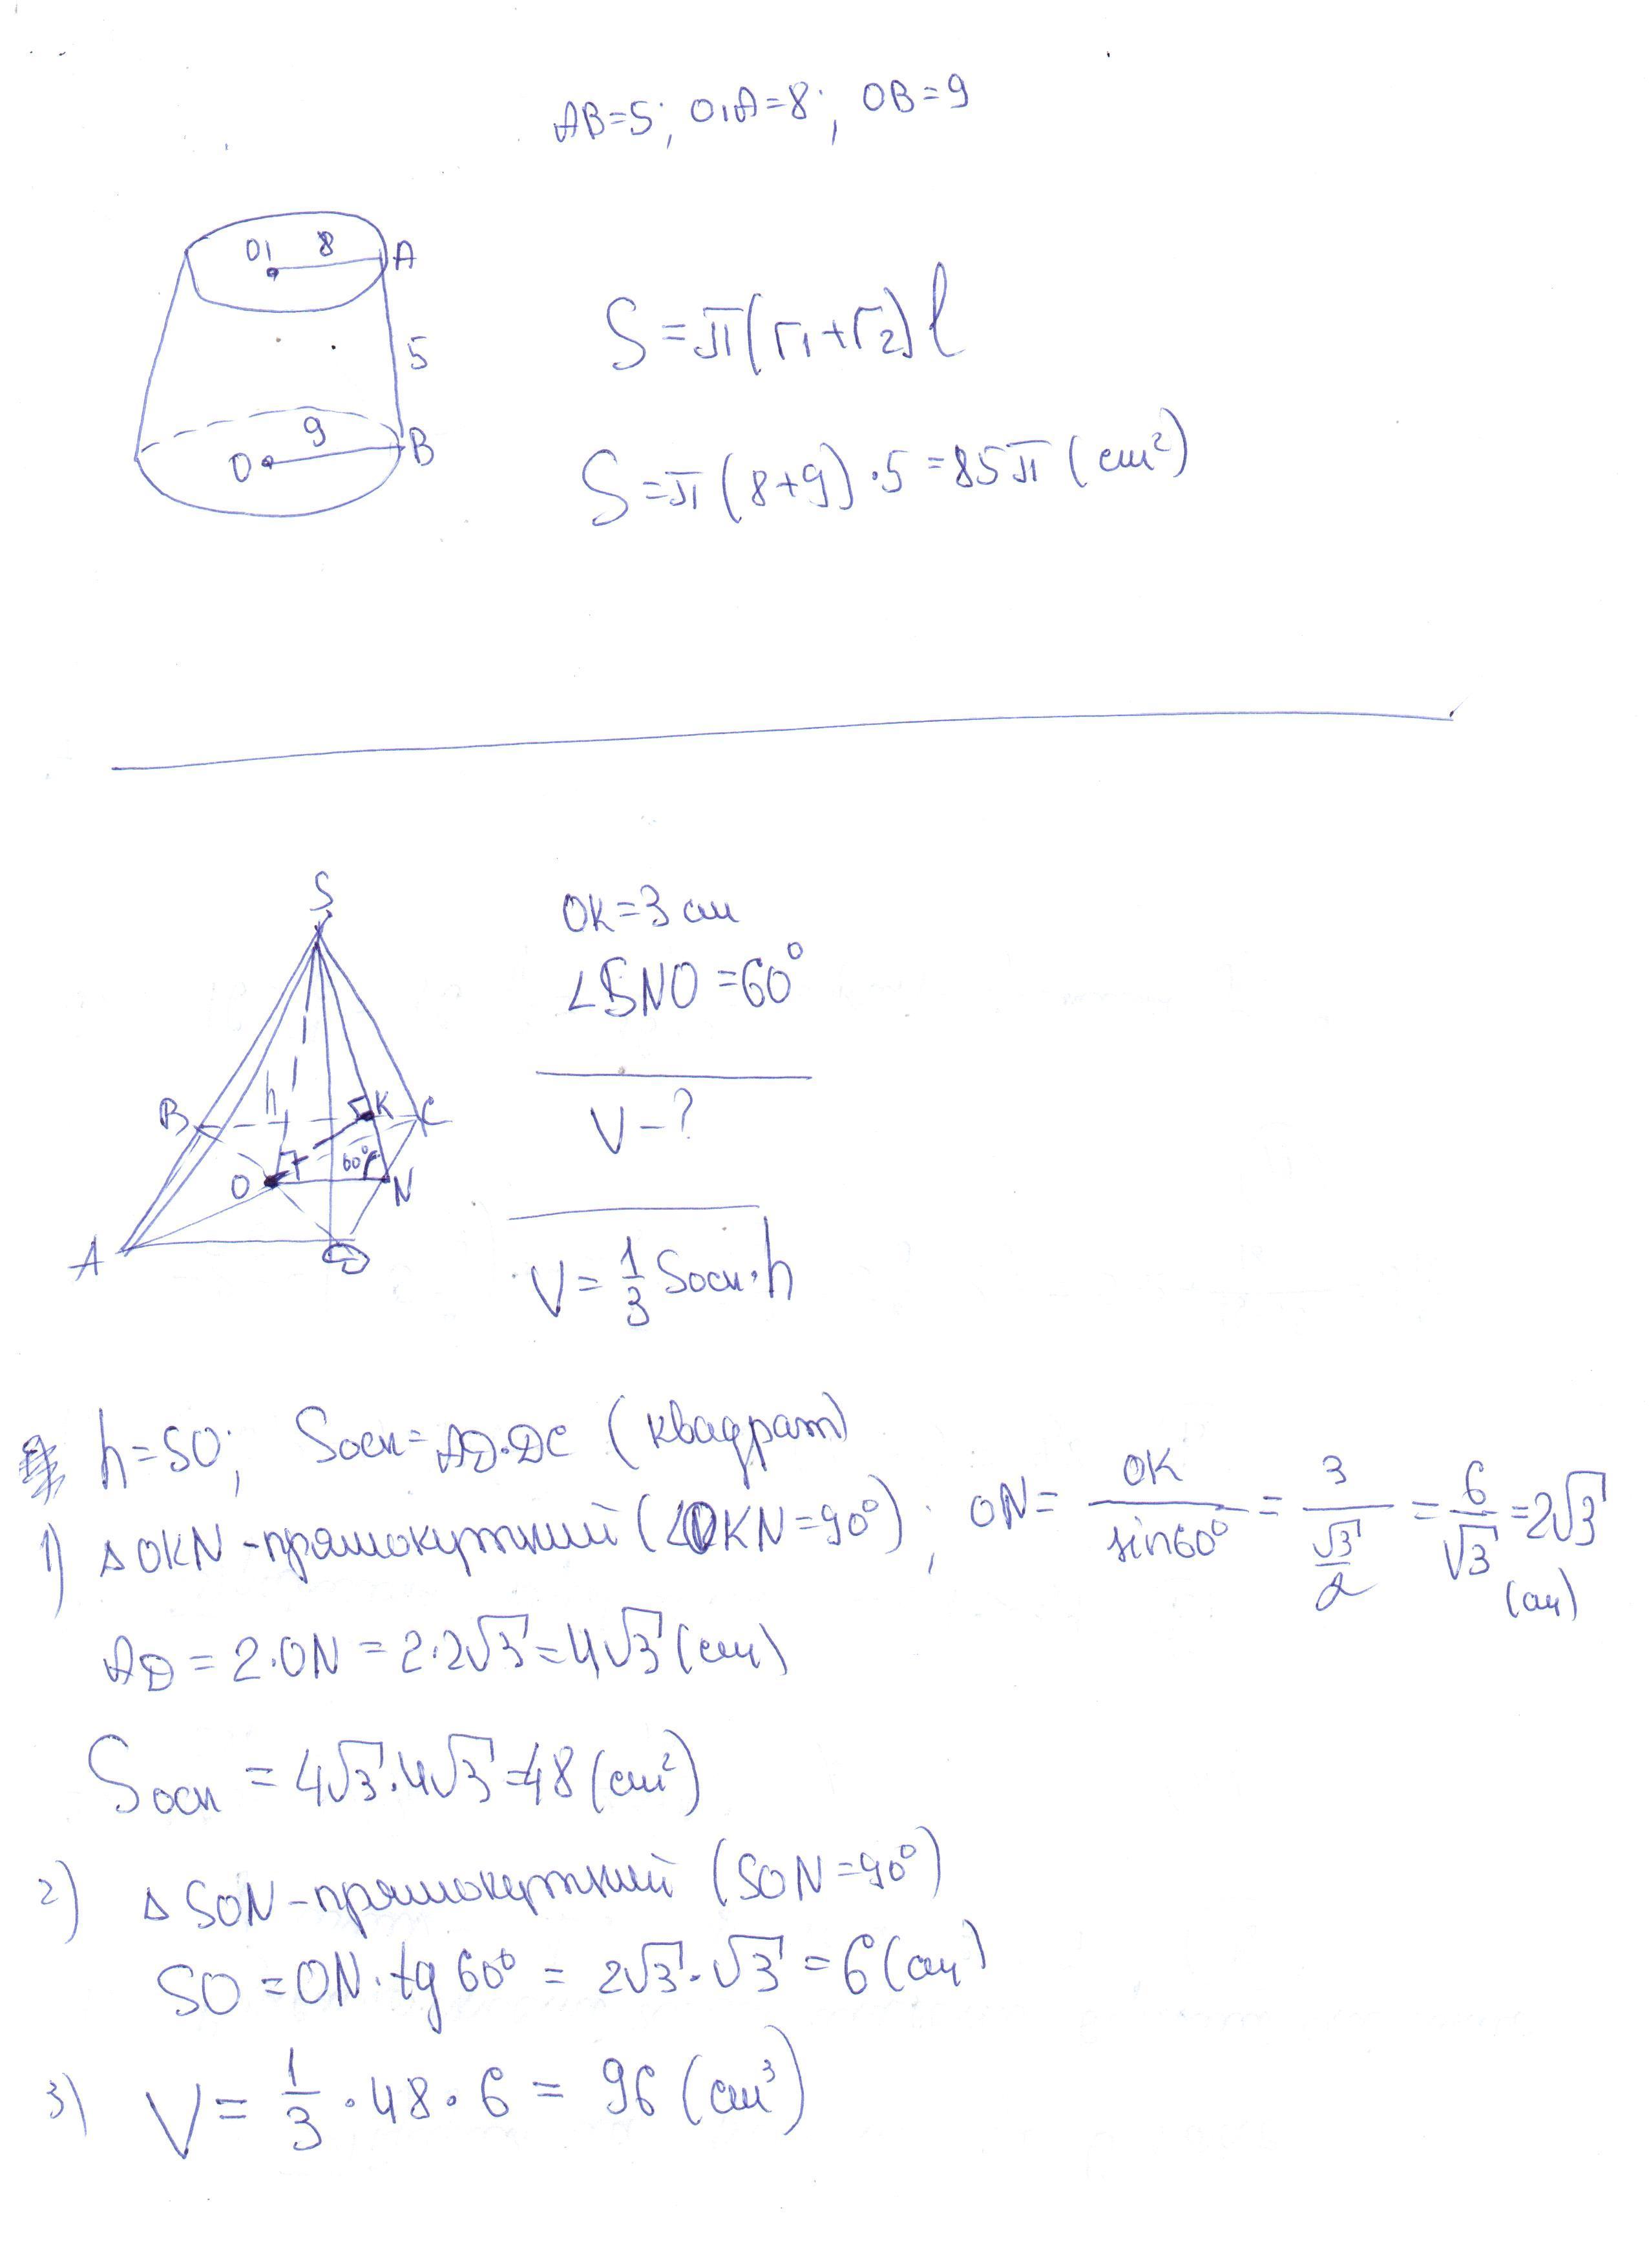 AB=5; O₁A=8; OB=9
O₁ 8 A
5
9
O B
S=π(r₁+r₂)l
S=π(8+9)·5=85π(см²)
S
OK=3 см
∠SNO=60°
V-?
B h K C
O 60° N
A D
V=1/3 Sосн·h
h=SO; Sосн=AD·DC (квадрат)
1) △OKN-прямокутний (∠OKN=90°); ON= OK/sin60° = 3/(√3/2) = 6/√3 =2√3 (см)
AD=2·ON=2·2√3=4√3(см)
Sосн = 4√3·4√3=48(см²)
2) △SON-прямокутний (SON=90°)
SO=ON·tg60° = 2√3·√3=6(см)
3) V= 1/3 ·48·6= 96(см³)